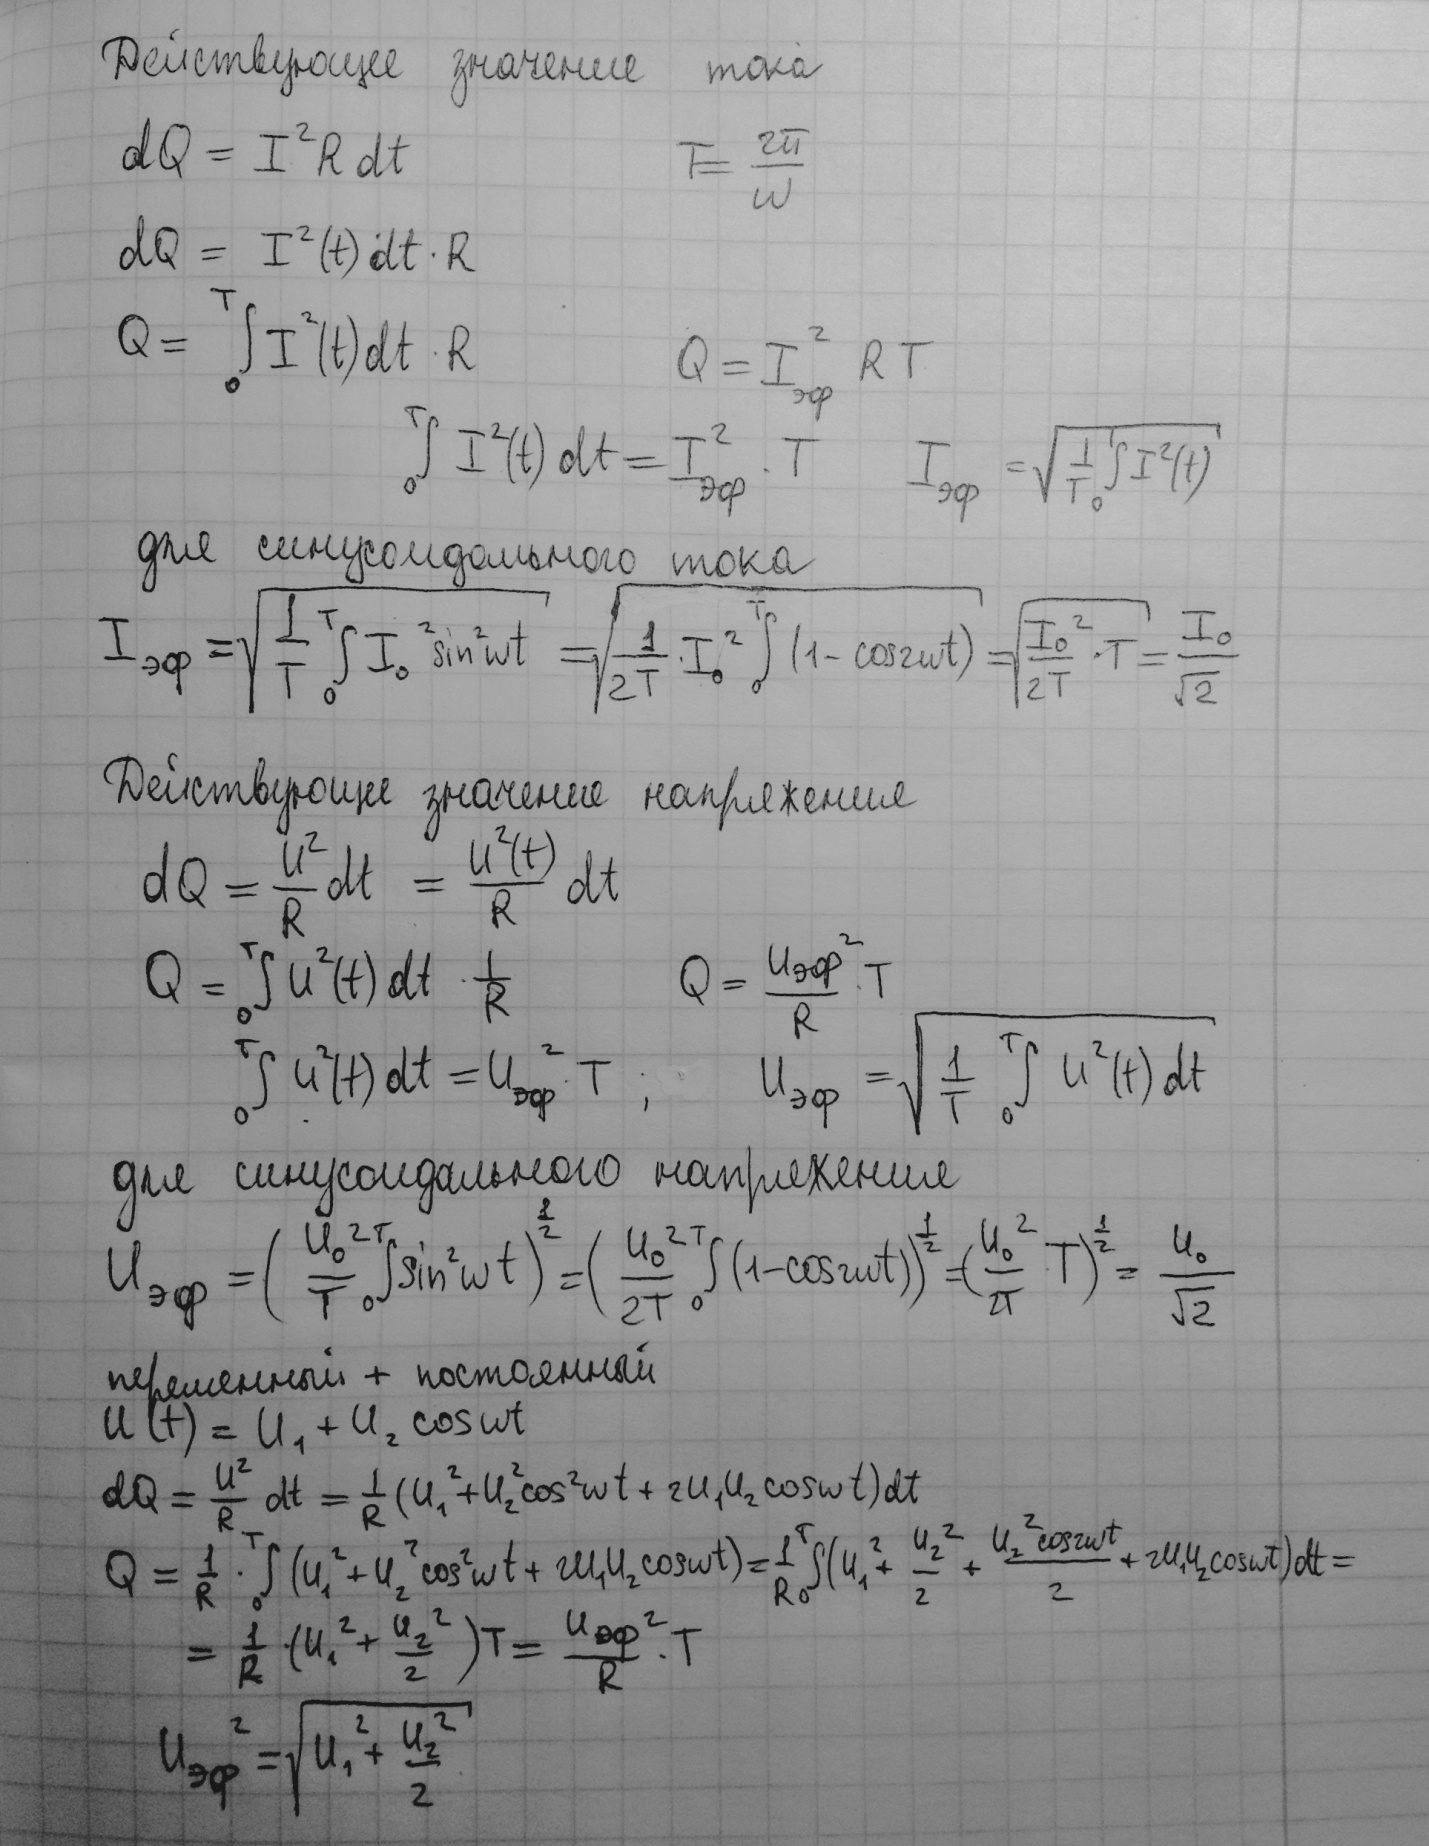 Действующее значение тока
dQ = I²R dt T = 2π/ω
dQ = I²(t) dt · R
Q = ₀∫ᵀ I²(t) dt · R Q = I²эф R T
₀∫ᵀ I²(t) dt = I²эф · T Iэф = √(1/T ₀∫ᵀ I²(t))
для синусоидального тока
Iэф = √(1/T ₀∫ᵀ I₀² sin²ωt) = √(1/2T · I₀² ₀∫ᵀ (1 - cos2ωt)) = √(I₀²/2T · T) = I₀/√2
Действующее значение напряжения
dQ = U²/R dt = U²(t)/R dt
Q = ₀∫ᵀ U²(t) dt · 1/R Q = Uэф²/R · T
₀∫ᵀ U²(t) dt = Uэф² · T ; Uэф = √(1/T ₀∫ᵀ U²(t) dt)
для синусоидального напряжения
Uэф = (U₀²/T ₀∫ᵀ sin²ωt)^½ = (U₀²/2T ₀∫ᵀ (1 - cos2ωt))^½ = (U₀²/2T · T)^½ = U₀/√2
переменный + постоянный
U(t) = U₁ + U₂ cosωt
dQ = U²/R dt = 1/R (U₁² + U₂² cos²ωt + 2U₁U₂ cosωt) dt
Q = 1/R · ₀∫ᵀ (U₁² + U₂² cos²ωt + 2U₁U₂ cosωt) = 1/R ₀∫ᵀ (U₁² + U₂²/2 + U₂² cos2ωt/2 + 2U₁U₂ cosωt) dt =
= 1/R · (U₁² + U₂²/2) T = Uэф²/R · T
Uэф² = √(U₁² + U₂²/2)